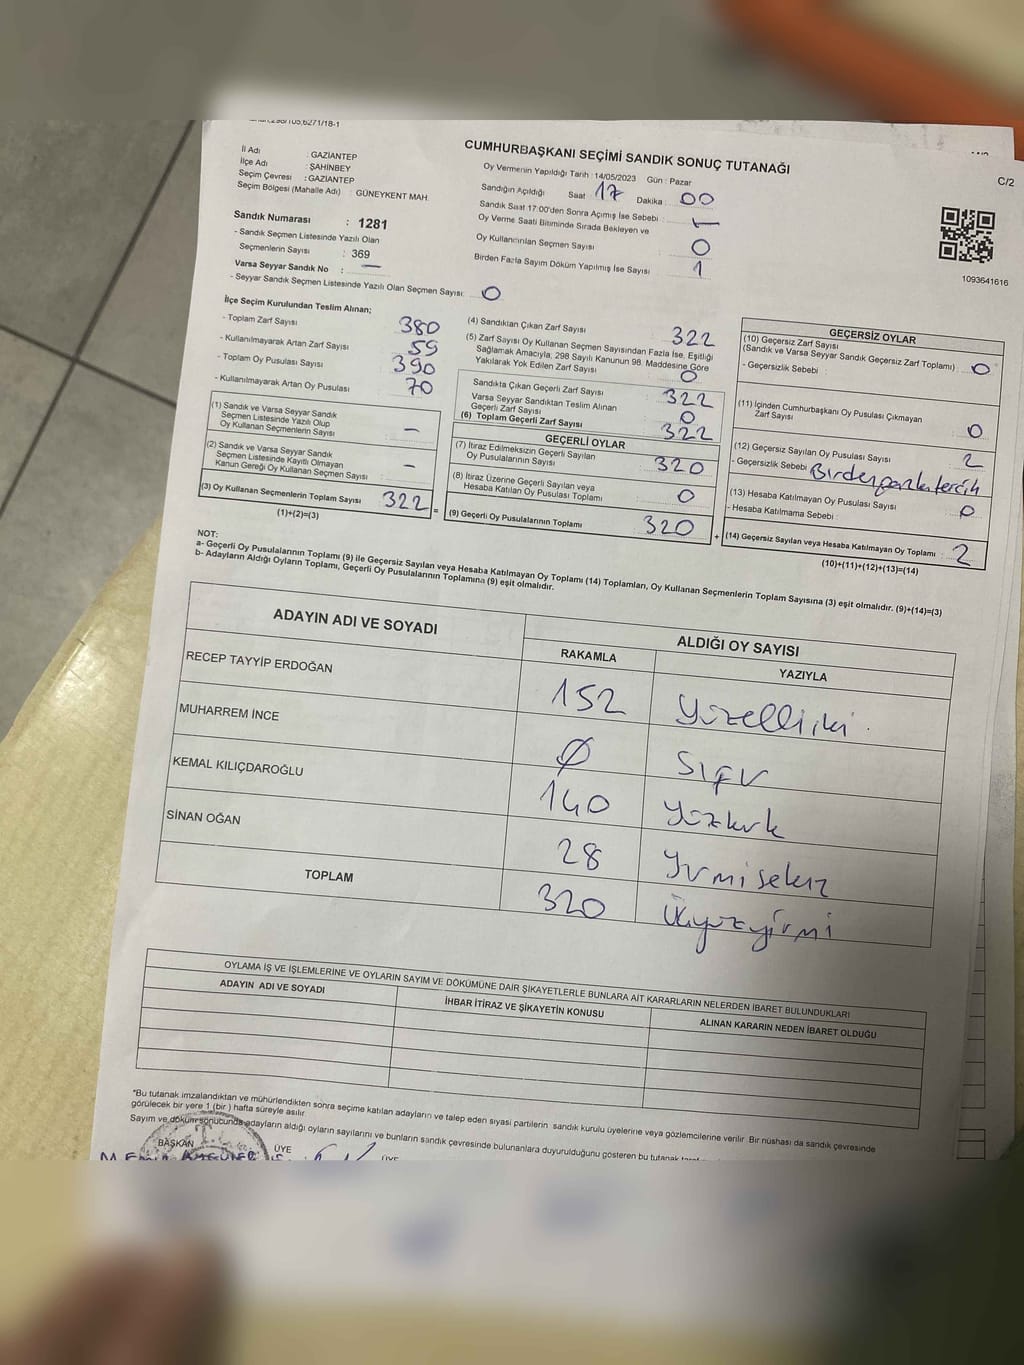 CUMHURBAŞKANI SEÇİMİ SANDIK SONUÇ TUTANAĞI
C/2
İl Adı : GAZİANTEP
İlçe Adı : ŞAHİNBEY
Seçim Çevresi : GAZİANTEP
Seçim Bölgesi (Mahalle Adı) : GÜNEYKENT MAH.
Sandık Numarası : 1281
- Sandık Seçmen Listesinde Yazılı Olan
Seçmenlerin Sayısı : 369
Varsa Seyyar Sandık No : —
- Seyyar Sandık Seçmen Listesinde Yazılı Olan Seçmen Sayısı: 0
Oy Vermenin Yapıldığı Tarih : 14/05/2023 Gün : Pazar
Sandığın Açıldığı Saat 17 Dakika : 00
Sandık Saat 17:00'den Sonra Açılmış İse Sebebi : —
Oy Verme Saati Bitiminde Sırada Bekleyen ve
Oy Kullandırılan Seçmen Sayısı 0
Birden Fazla Sayım Döküm Yapılmış İse Sayısı 1
1093641616
İlçe Seçim Kurulundan Teslim Alınan;
- Toplam Zarf Sayısı 380
- Kullanılmayarak Artan Zarf Sayısı 59
- Toplam Oy Pusulası Sayısı 390
- Kullanılmayarak Artan Oy Pusulası 70
(1) Sandık ve Varsa Seyyar Sandık
Seçmen Listesinde Yazılı Olup
Oy Kullanan Seçmenlerin Sayısı : —
(2) Sandık ve Varsa Seyyar Sandık
Seçmen Listesinde Kayıtlı Olmayan
Kanun Gereği Oy Kullanan Seçmen Sayısı : —
(3) Oy Kullanan Seçmenlerin Toplam Sayısı 322 =
(1)+(2)=(3)
(4) Sandıktan Çıkan Zarf Sayısı : 322
(5) Zarf Sayısı Oy Kullanan Seçmen Sayısından Fazla İse, Eşitliği
Sağlamak Amacıyla, 298 Sayılı Kanunun 98. Maddesine Göre
Yakılarak Yok Edilen Zarf Sayısı : 0
Sandıkta Çıkan Geçerli Zarf Sayısı : 322
Varsa Seyyar Sandıktan Teslim Alınan
Geçerli Zarf Sayısı 0
(6) Toplam Geçerli Zarf Sayısı 322
GEÇERLİ OYLAR
(7) İtiraz Edilmeksizin Geçerli Sayılan
Oy Pusulalarının Sayısı : 320
(8) İtiraz Üzerine Geçerli Sayılan veya
Hesaba Katılan Oy Pusulası Toplamı : 0
(9) Geçerli Oy Pusulalarının Toplamı 320 +
GEÇERSİZ OYLAR
(10) Geçersiz Zarf Sayısı
(Sandık ve Varsa Seyyar Sandık Geçersiz Zarf Toplamı) : 0
- Geçersizlik Sebebi :
(11) İçinden Cumhurbaşkanı Oy Pusulası Çıkmayan
Zarf Sayısı 0
(12) Geçersiz Sayılan Oy Pusulası Sayısı 2
- Geçersizlik Sebebi Birden fazla tercih
(13) Hesaba Katılmayan Oy Pusulası Sayısı 0
- Hesaba Katılmama Sebebi :
(14) Geçersiz Sayılan veya Hesaba Katılmayan Oy Toplamı 2
(10)+(11)+(12)+(13)=(14)
NOT:
a- Geçerli Oy Pusulalarının Toplamı (9) ile Geçersiz Sayılan veya Hesaba Katılmayan Oy Toplamı (14) Toplamları, Oy Kullanan Seçmenlerin Toplam Sayısına (3) eşit olmalıdır. (9)+(14)=(3)
b- Adayların Aldığı Oyların Toplamı, Geçerli Oy Pusulalarının Toplamına (9) eşit olmalıdır.
ADAYIN ADI VE SOYADI ALDIĞI OY SAYISI
RAKAMLA YAZIYLA
RECEP TAYYİP ERDOĞAN 152 Yüzelliiki
MUHARREM İNCE 0 Sıfır
KEMAL KILIÇDAROĞLU 140 Yüzkırk
SİNAN OĞAN 28 Yirmisekiz
TOPLAM 320 Üçyüzyirmi
OYLAMA İŞ VE İŞLEMLERİNE VE OYLARIN SAYIM VE DÖKÜMÜNE DAİR ŞİKAYETLERLE BUNLARA AİT KARARLARIN NELERDEN İBARET BULUNDUKLARI
ADAYIN ADI VE SOYADI İHBAR İTİRAZ VE ŞİKAYETİN KONUSU ALINAN KARARIN NEDEN İBARET OLDUĞU
*Bu tutanak imzalandıktan ve mühürlendikten sonra seçime katılan adayların ve talep eden siyasi partilerin sandık kurulu üyelerine veya gözlemcilerine verilir. Bir nüshası da sandık çevresinde
görülecek bir yere 1 (bir) hafta süreyle asılır.
Sayım ve döküm sonucunda adayların aldığı oyların sayılarını ve bunların sandık çevresinde bulunanlara duyurulduğunu gösteren bu tutanak
BAŞKAN ÜYE ÜYE